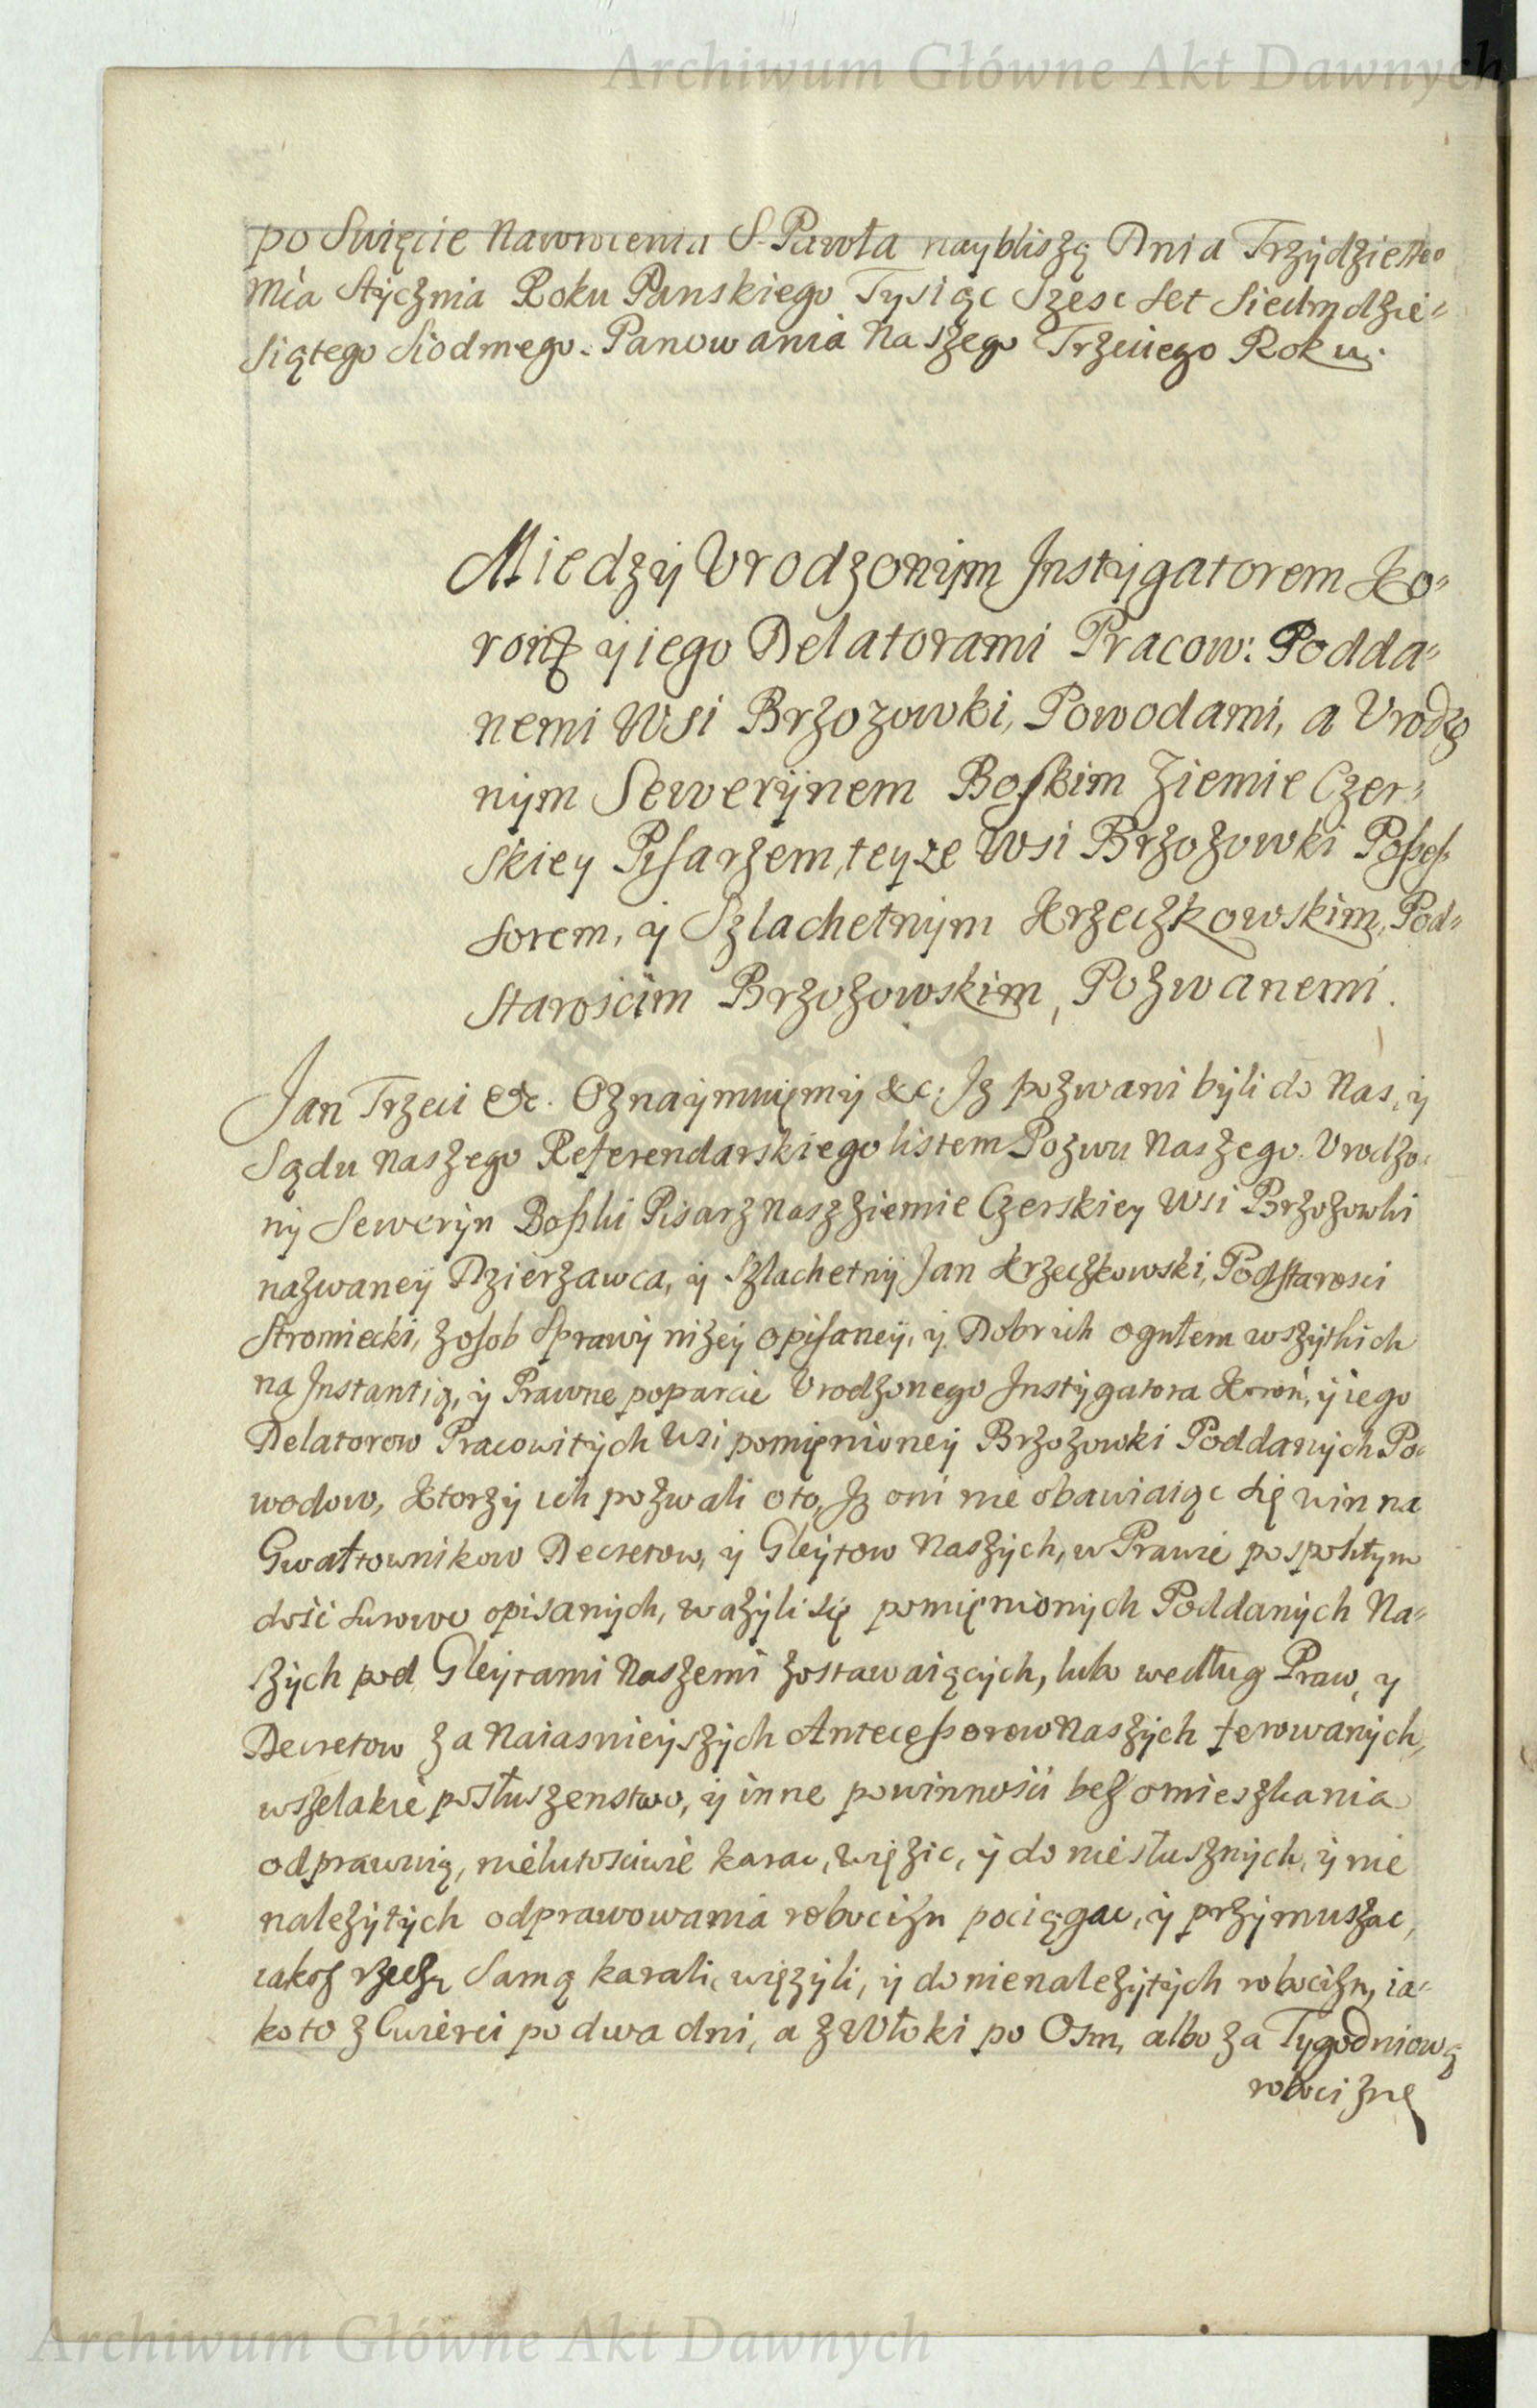 Archiwum Główne Akt Dawnych
po Swięcie Nawrocenia S. Pawła naybliszą Dnia Trzydziestego
Mca Stycznia Roku Panskiego Tysiąc Szesc Set Siedmdzie=
siątego Siodmego. Panowania Naszego Trzeciego Roku.
Miedzy Vrodzonym Instygatorem Ko=
ronn y iego Delatorami Pracow: Podda=
nemi Wsi Brzozowki, Powodami, a Vrodzo
nym Sewerynem Boskim Ziemie Czer=
skiey Pisarzem, teyze Wsi Brzozowki Posses
sorem, y Szlachetnym Krzeczkowskim, Pod=
starościm Brzozowskim, Pozwanemi.
Jan Trzeci &c. Oznaymuięmy &c: Jz pozwani byli do Nas, y
Sądu Naszego Referendarskiego listem Pozwu Naszego. Vrodzo=
ny Seweryn Boski Pisarz Nasz Ziemie Czerskiey Wsi Brzozowki
nazwaney Dzierzawca, y Szlachetny Jan Krzeczkowski, Podstarosci
Stromiecki, z osob Sprawy nizey opisaney, y Dobr ich ogułem wszytkich
na Instantią, y Prawne poparcie Vrodzonego Instygatora Koron, y iego
Delatorow Pracowitych Wsi pomięnioney Brzozowki Poddanych Po=
wodow, Ktorzy ich pozwali oto, Jz oni nie obawiaiąc się win na
Gwałtownikow Decretow, y Gleytow Naszych, w Prawie pospolitym
dość surowo opisanych, wazyli się pomięnionych Poddanych Na=
szych pod Gleytami Naszemi zostawaiących, lubo według Praw, y
Decretow za Naiasnieyszych Antecessorow Naszych ferowanych,
wszelakie posłuszenstwo, y inne powinności bez omieszkania
odprawuią, nielutościwie karac, więzic, y do niesłusznych, y nie
nalezytych odprawowania robocizn pociągac, y przymuszac,
iakosz rzeczą Samą karali, więzyli, y do nienalezytych robocizn, ia=
ko to z Cwierci po dwa dni, a z Włoki po Osm, albo za Tygodniową
robociznę
Archiwum Główne Akt Dawnych